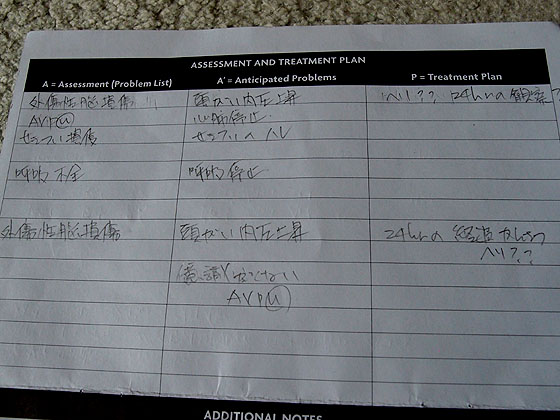 ASSESSMENT AND TREATMENT PLAN
A = Assessment (Problem List) A' = Anticipated Problems P = Treatment Plan
外傷性脳損傷 頭がい内圧上昇 ヘリ?? 24hrの観察?
AVPU 心肺停止
せきつい損傷
呼吸不全 呼吸停止
外傷性脳損傷 頭がい内圧上昇 24hrの経過
ヘリ??
意識
AVPU
ADDITIONAL NOTES